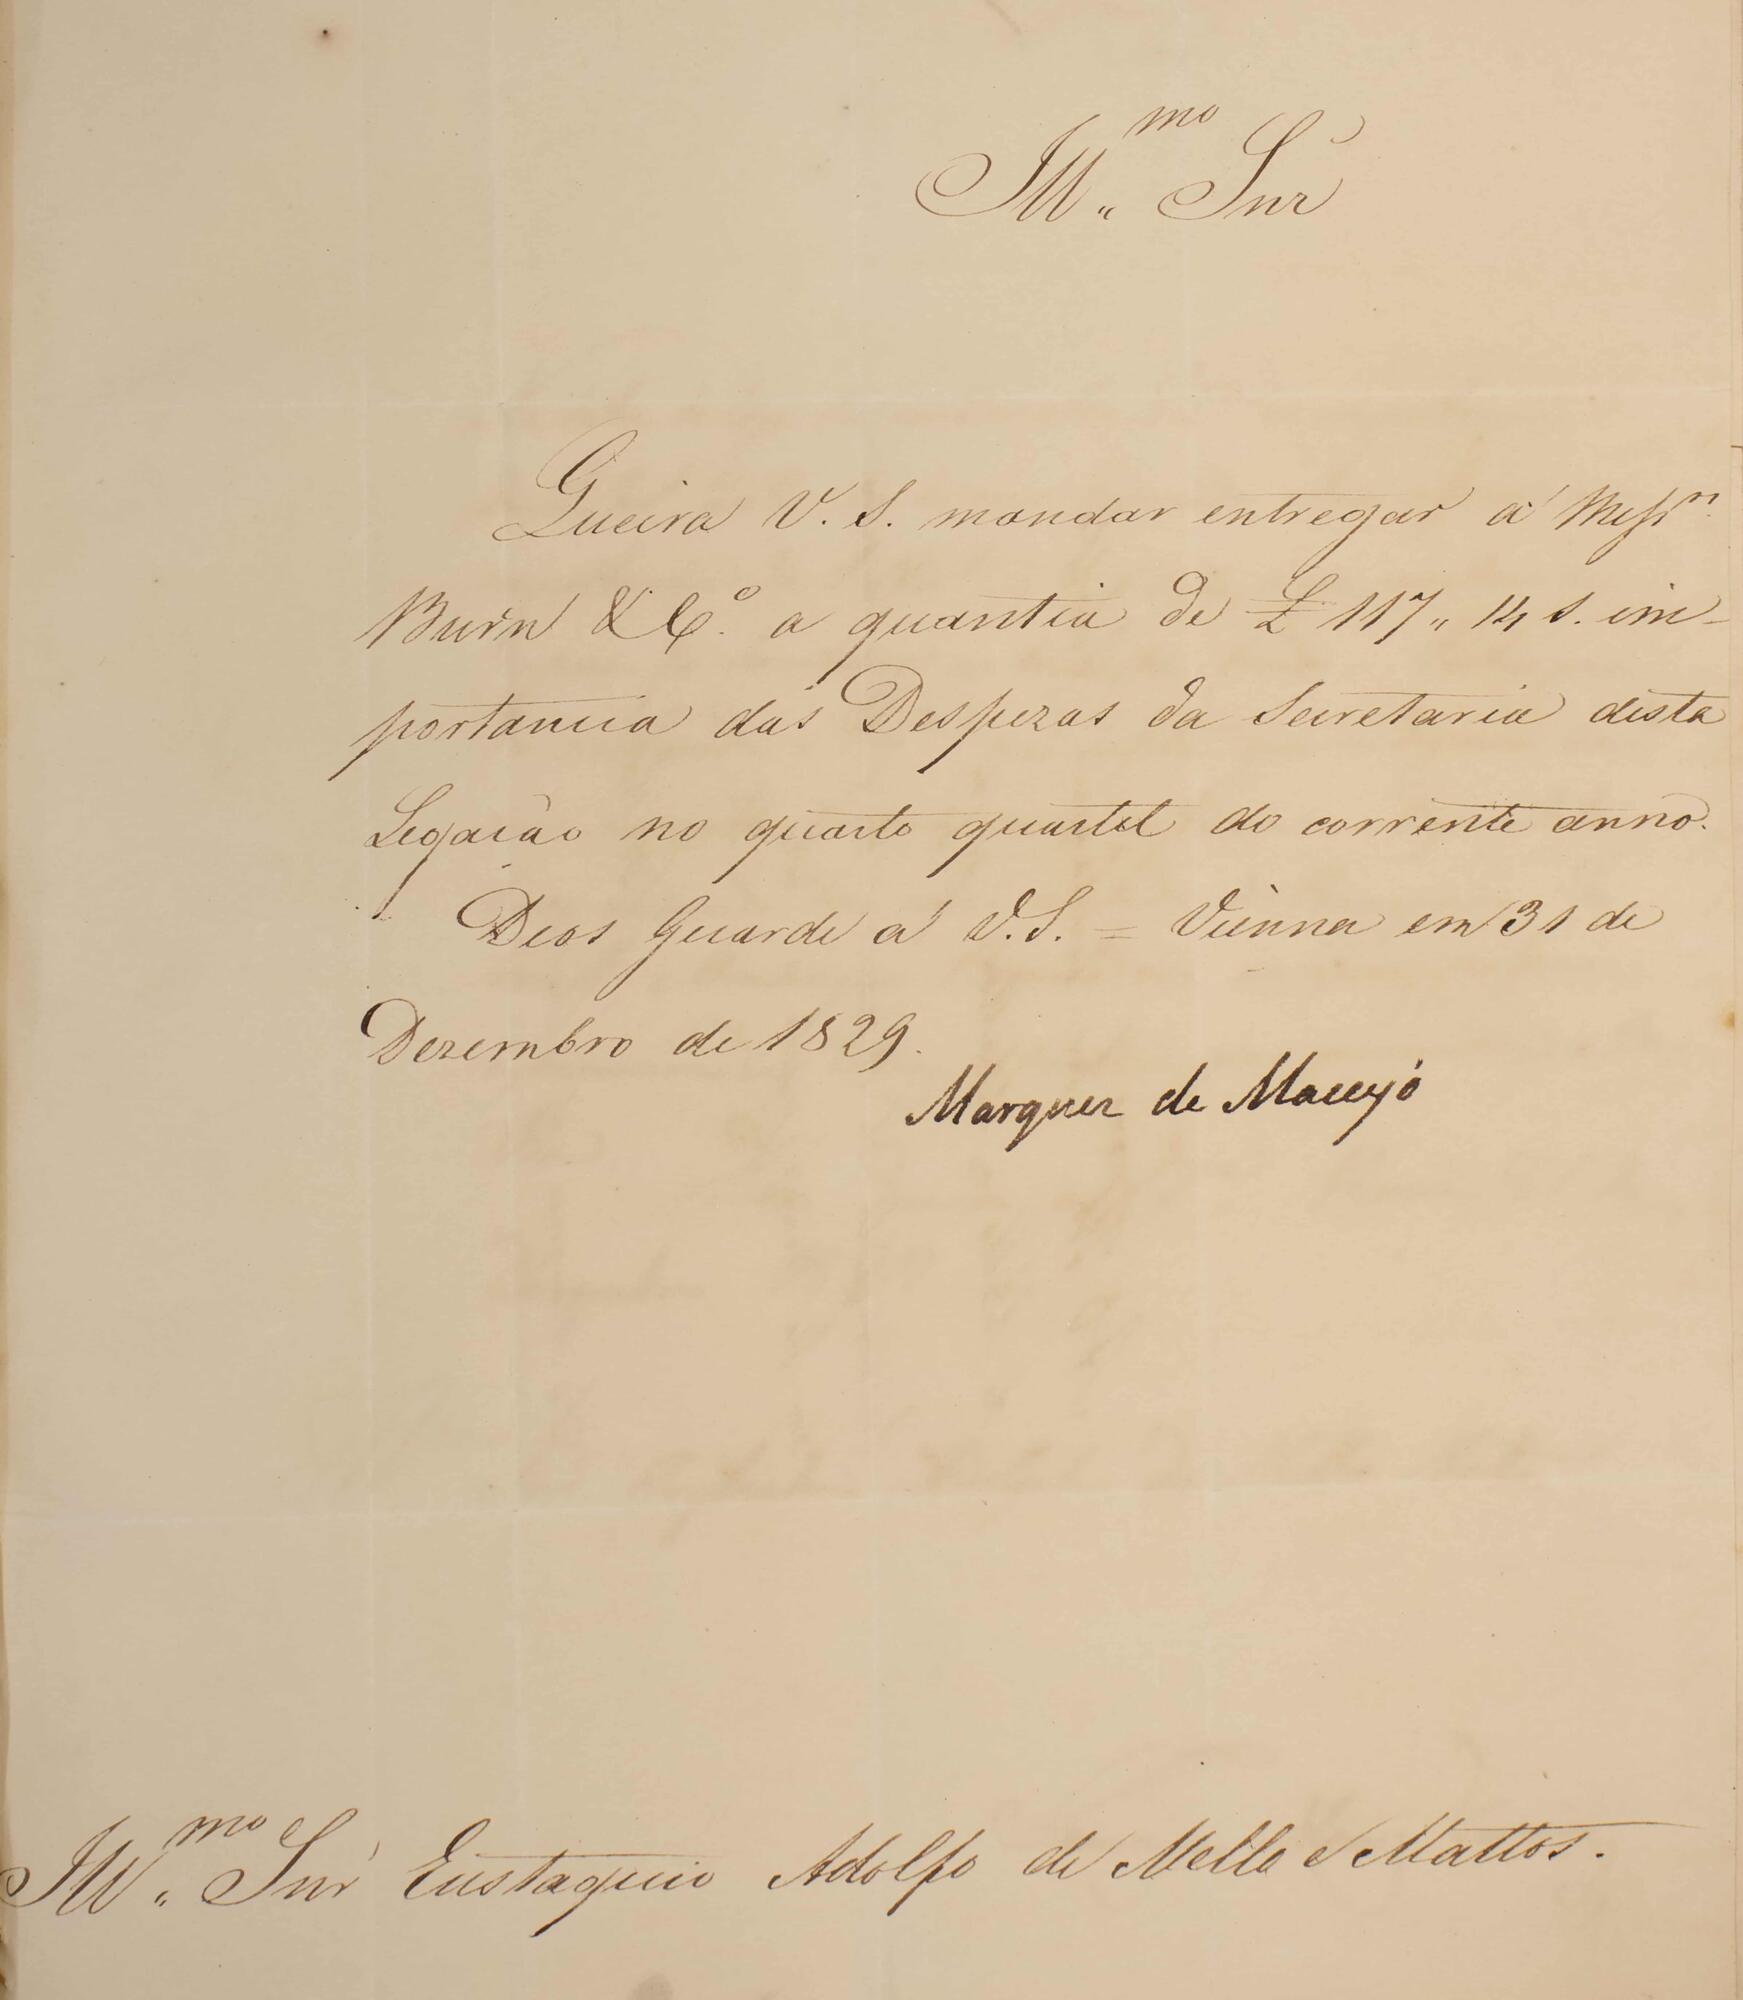 Ill.mo Snr
Queira V. S. mandar entregar á Messrs.
Burn & Co. a quantia de £ 117,, 14 s. im-
portancia das Despezas da Secretaria desta
Legação no quarto quartel do corrente anno.
Deos Guarde a V. S. = Vienna em 31 de
Dezembro de 1829.
Marquez de Maceyó
Ill.mo Snr Eustaquio Adolfo de Mello e Mattos.